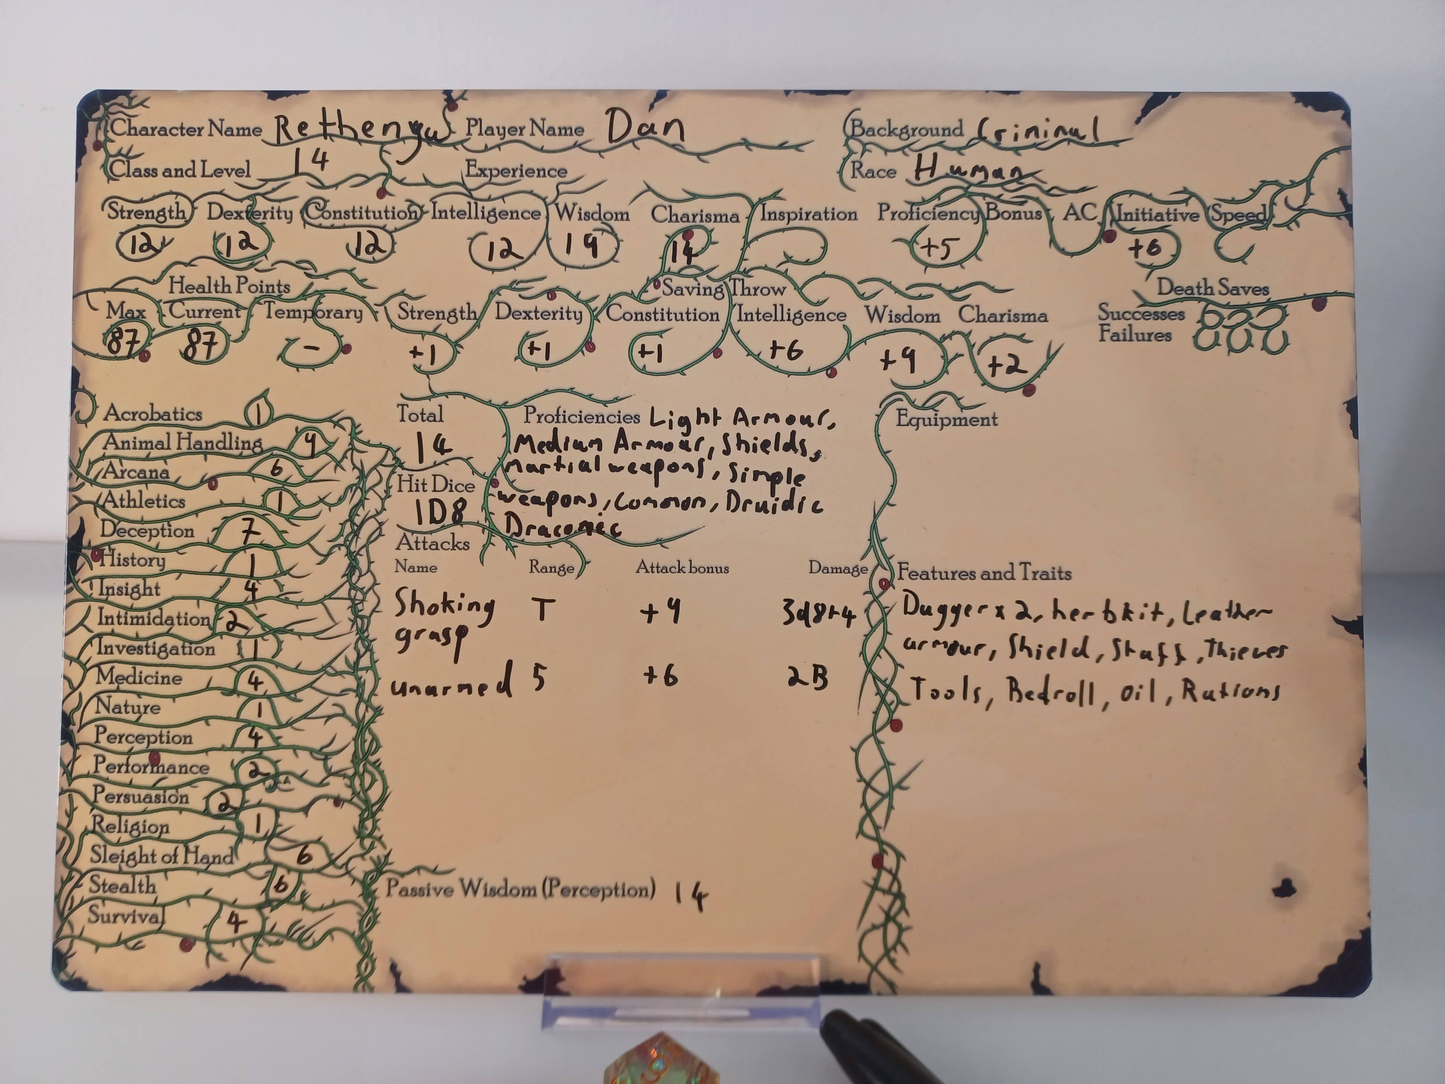 Character Name Rethengu Player Name Dan Background Criminal
Class and Level 14 Experience Race Human
Strength Dexterity Constitution Intelligence Wisdom Charisma Inspiration Proficiency Bonus AC Initiative Speed
12 12 12 12 19 14 +5 +6
Health Points Saving Throw Death Saves
Max Current Temporary Strength Dexterity Constitution Intelligence Wisdom Charisma Successes
Failures
87 87 - +1 +1 +1 +6 +9 +2
Acrobatics 1
Animal Handling 9
Arcana 6
Athletics 1
Deception 7
History 1
Insight 4
Intimidation 2
Investigation 1
Medicine 4
Nature 1
Perception 4
Performance 2
Persuasion 2
Religion 1
Sleight of Hand 6
Stealth 6
Survival 4
Total
14
Hit Dice
1D8
Proficiencies Light Armour,
Medium Armour, Shields,
martial weapons, Simple
weapons, Common, Druidic
Draconic
Attacks
Name Range Attack bonus Damage
Shoking T +9 3d8+4
grasp
unarmed 5 +6 2B
Passive Wisdom (Perception) 14
Equipment
Features and Traits
Dagger x 2, herb kit, Leather
armour, Shield, Staff, Thieves
Tools, Bedroll, oil, Rations